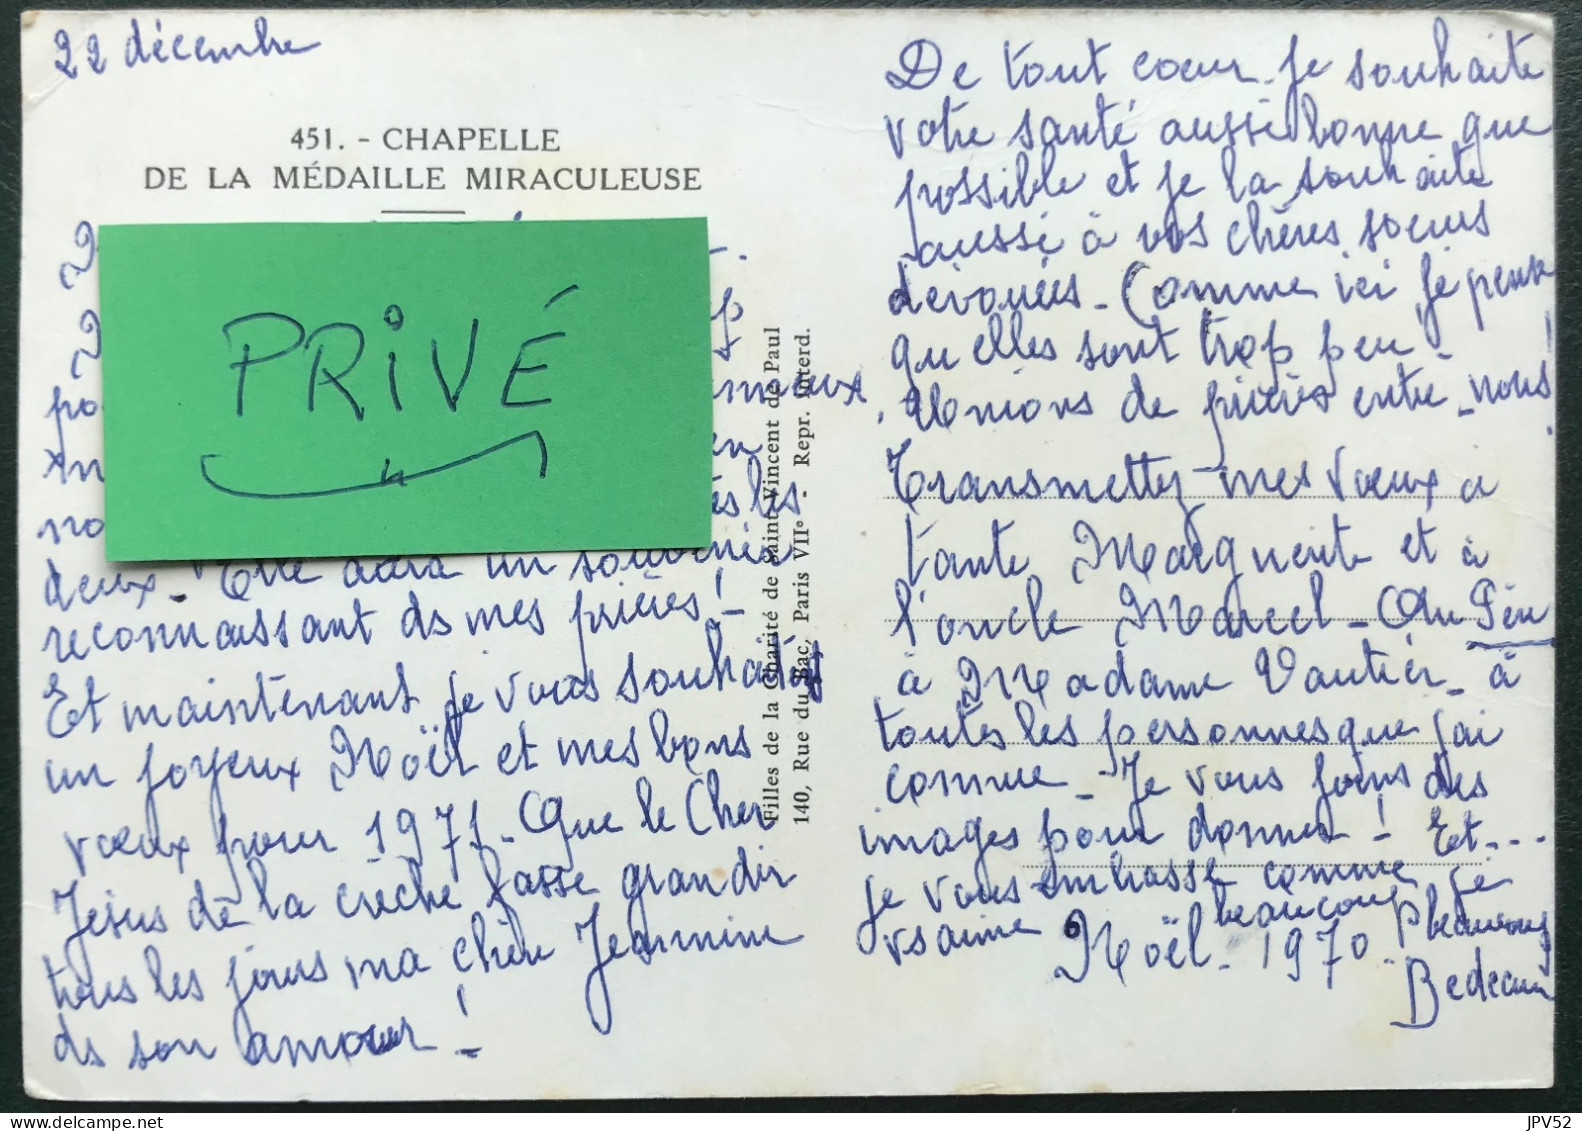 22 décembre
451. - CHAPELLE
DE LA MÉDAILLE MIRACULEUSE
PRIVÉ
po
no
deux - Elle aura un souvenir
reconnaissant ds mes prières ! -
Et maintenant je vous souhaite
un joyeux Noël et mes bons
vœux pour 1971 - Que le Cher
Jésus de la crèche fasse grandir
tous les jours ma chère Jeannine
ds son amour ! -
Filles de la Charité de Saint Vincent de Paul
140, Rue du Bac, Paris VIIe - Repr. interd.
De tout coeur je souhaite
votre santé aussi bonne que
possible et je la souhaite
aussi à vos chères soeurs
dévouées - Comme ici je pense
qu'elles sont trop peu -
Unions de prières entre-nous !
Transmettez mes vœux à
tante Marguerite et à
l'oncle Marcel - Au Père
à Madame Vautier - à
toutes les personnes que j'ai
connue - Je vous joins des
images pour donner ! Et ...
je vous embrasse comme je
vs aime beaucoup beaucoup
Noël - 1970